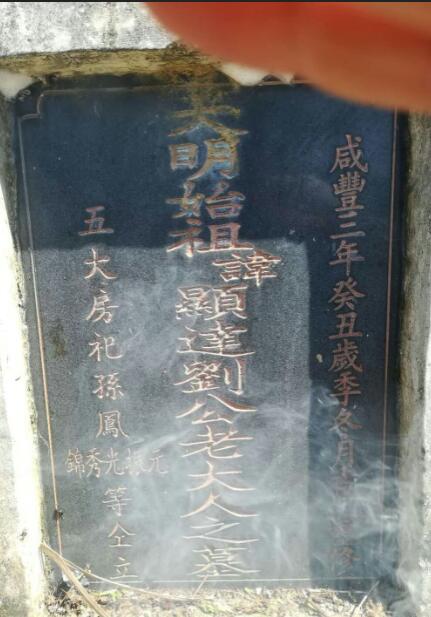 咸豐三年癸丑歲季冬月吉
明始祖諱顯達劉公老大人之墓
五大房祀孫鳳錦秀光振元等仝立